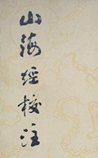 山海經校注